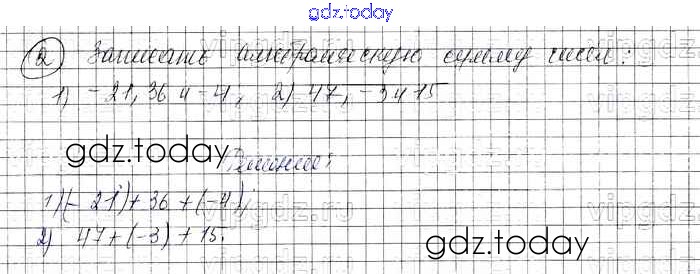 gdz.today
② Записать алгебраическую сумму чисел:
1) -21, 36 и -4; 2) 47, -3 и 15
gdz.today Решение:
1) (-21)+36+(-4);
2) 47+(-3)+15.
gdz.today
vipgdz.ru